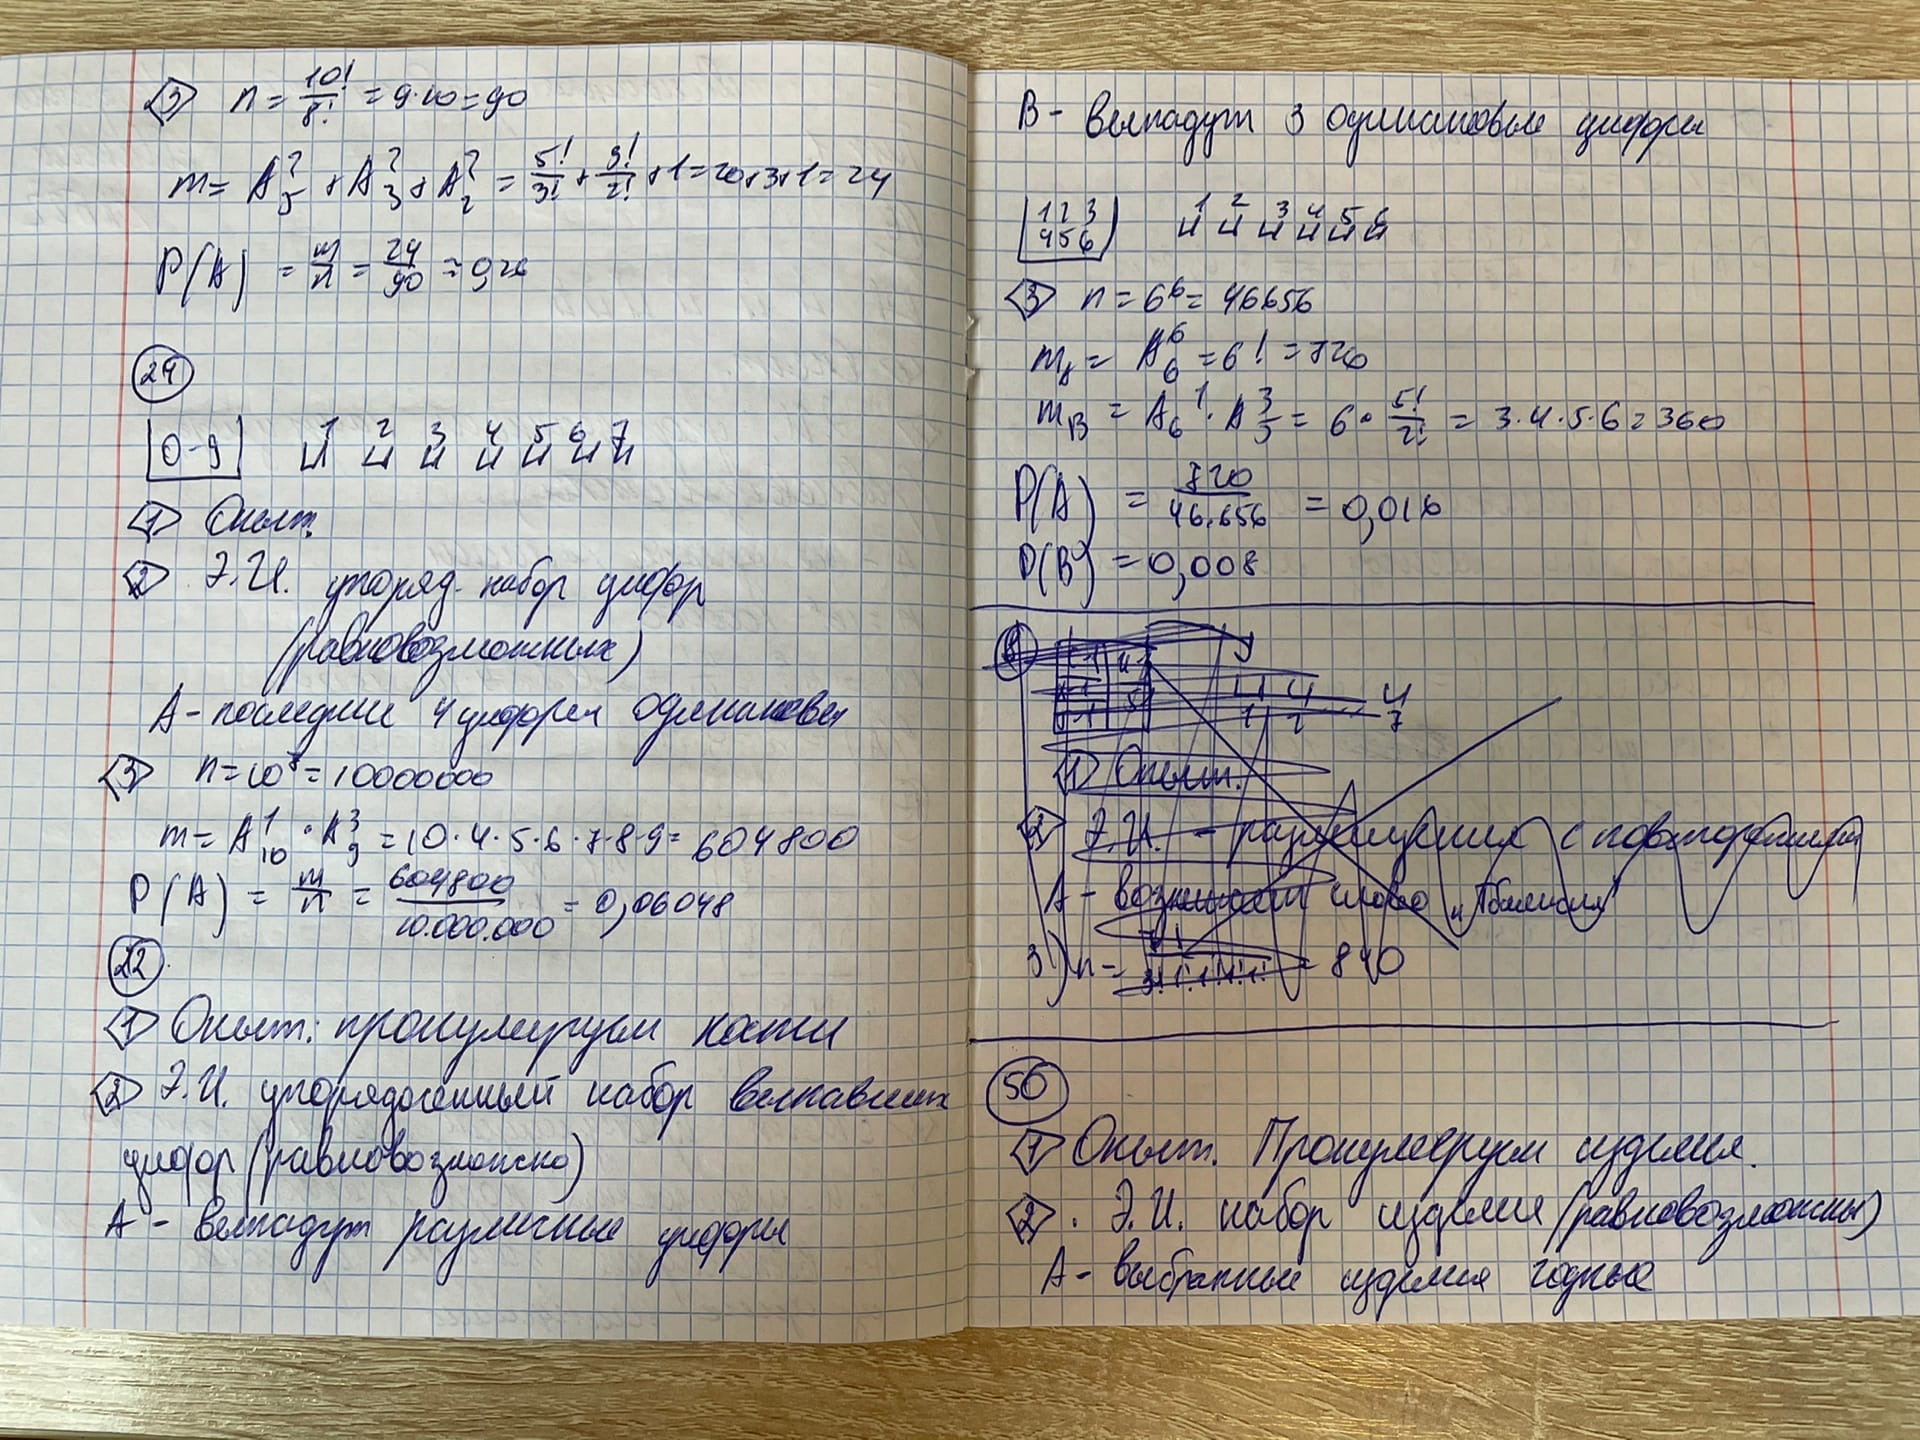 <3> n = 10!/8! = 9·10 = 90
m = A²₅ + A²₃ + A²₂ = 5!/3! + 3!/2! + 1 = 20+3+1 = 24
P(A) = m/n = 24/90 = 0,26
24
0-9 1 2 3 4 5 6 7
<1> Опыт.
<2> Э.И. упоряд. набор цифр
(равновозможных)
A - последние 4 цифры одинаковы
<3> n = 10⁷ = 10000000
m = A¹₁₀ · A³₉ = 10·4·5·6·7·8·9 = 604800
P(A) = m/n = 604800/10.000.000 = 0,06048
22
<1> Опыт: пронумеруем кости
<2> Э.И. упорядоченный набор выпавших
цифр (равновозможно)
A - выпадут различные цифры
B - выпадут 3 одинаковые цифры
1 2 3 4 5 6 1 2 3 4 5 6
<3> n = 6⁶ = 46656
m = A⁶₆ = 6! = 720
m_B = A¹₆ · A³₅ = 6 · 5!/2! = 3·4·5·6 = 360
P(A) = 720/46.656 = 0,016
P(B) = 0,008
<1> Опыт.
<2> Э.И. - размещения с повторениями
A - возникает слово
3) n = = 840
56
<1> Опыт. Пронумеруем изделия.
<2>. Э.И. набор изделия (равновозможны)
A - выбранные изделия годные